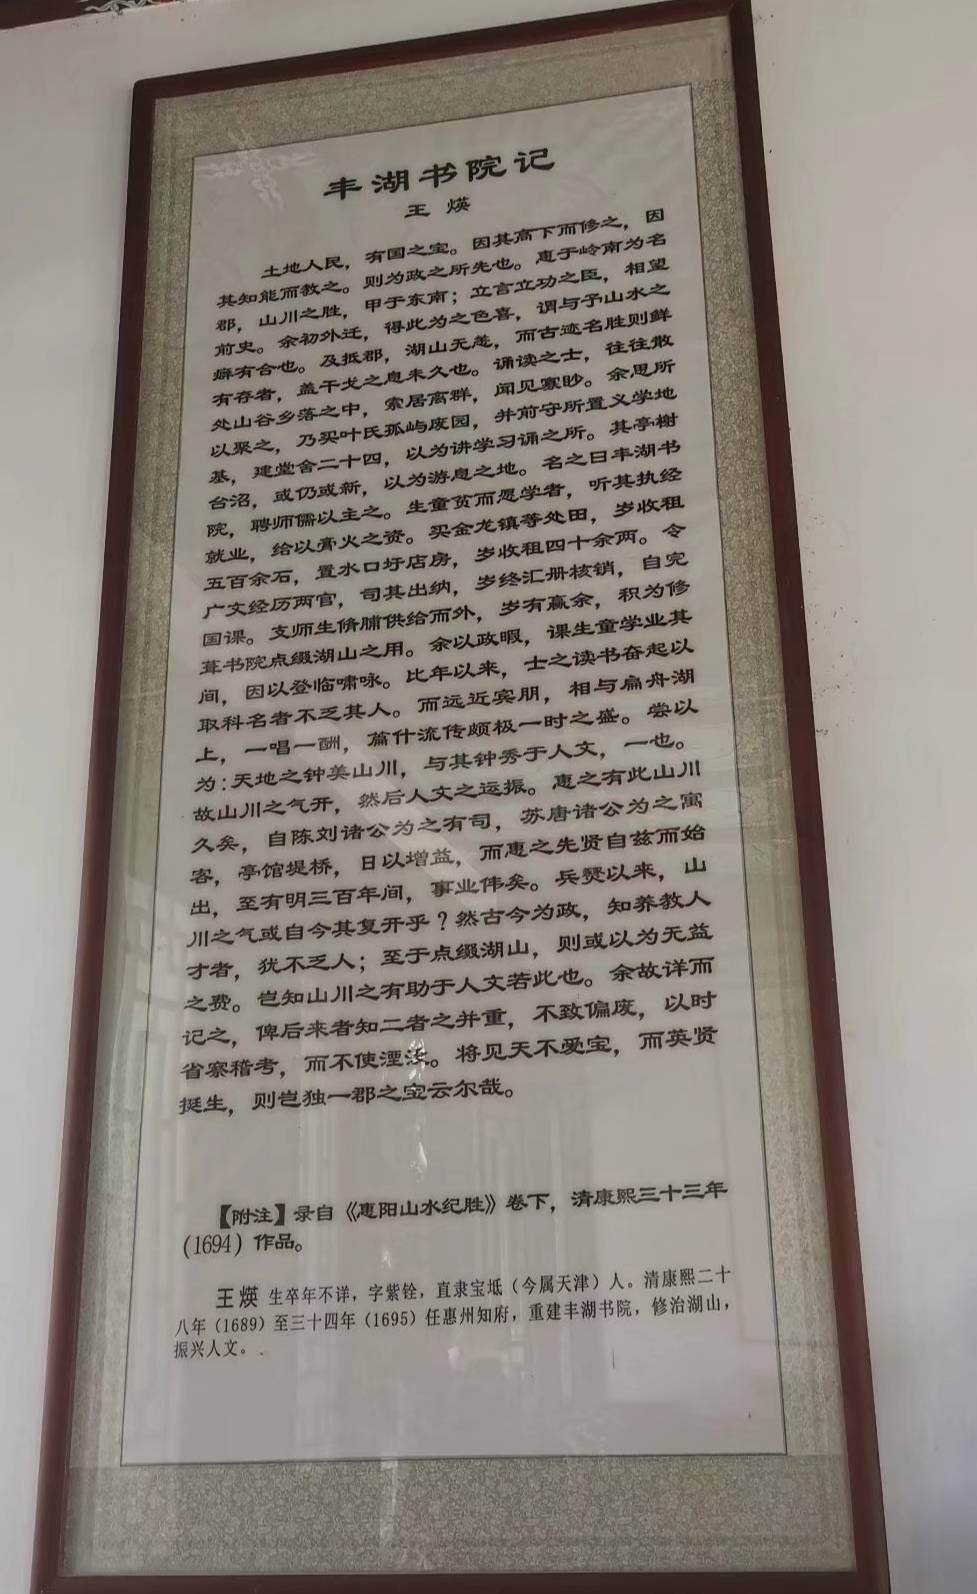 丰湖书院记
王煐
土地人民，有国之宝。因其高下而修之，因
其知能而教之。则为政之所先也。惠于岭南为名
郡，山川之胜，甲于东南；立言立功之臣，相望
前史。余初外迁，得此为之色喜，谓与予山水之
癖有合也。及抵郡，湖山无恙，而古迹名胜则鲜
有存者，盖干戈之息未久也。诵读之士，往往散
处山谷乡落之中，索居离群，闻见寡眇。余思所
以聚之，乃买叶氏孤屿废园，并前守所置义学地
基，建堂舍二十四，以为讲学习诵之所。其亭榭
台沼，或仍或新，以为游息之地。名之曰丰湖书
院，聘师儒以主之。生童贫而愿学者，听其执经
就业，给以膏火之资。买金龙镇等处田，岁收租
五百余石，置水口圩店房，岁收租四十余两。令
广文经历两官，司其出纳，岁终汇册核销，自完
国课。支师生脩脯供给而外，岁有赢余，积为修
葺书院点缀湖山之用。余以政暇，课生童学业其
间，因以登临啸咏。比年以来，士之读书奋起以
取科名者不乏其人。而远近宾朋，相与扁舟湖
上，一唱一酬，篇什流传颇极一时之盛。尝以
为：天地之钟美山川，与其钟秀于人文，一也。
故山川之气开，然后人文之运振。惠之有此山川
久矣，自陈刘诸公为之有司，苏唐诸公为之寓
客，亭馆堤桥，日以增益，而惠之先贤自兹而始
出，至有明三百年间，事业伟矣。兵燹以来，山
川之气或自今其复开乎？然古今为政，知养教人
才者，犹不乏人；至于点缀湖山，则或以为无益
之费。岂知山川之有助于人文若此也。余故详而
记之，俾后来者知二者之并重，不致偏废，以时
省察稽考，而不使湮没。将见天不爱宝，而英贤
挺生，则岂独一郡之宝云尔哉。
【附注】录自《惠阳山水纪胜》卷下，清康熙三十三年
（1694）作品。
王煐 生卒年不详，字紫铨，直隶宝坻（今属天津）人。清康熙二十
八年（1689）至三十四年（1695）任惠州知府，重建丰湖书院，修治湖山，
振兴人文。